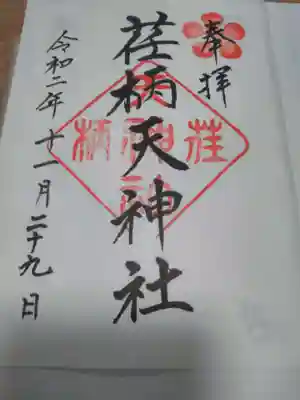 奉拝
荏柄天神社
令和二年十一月二十九日